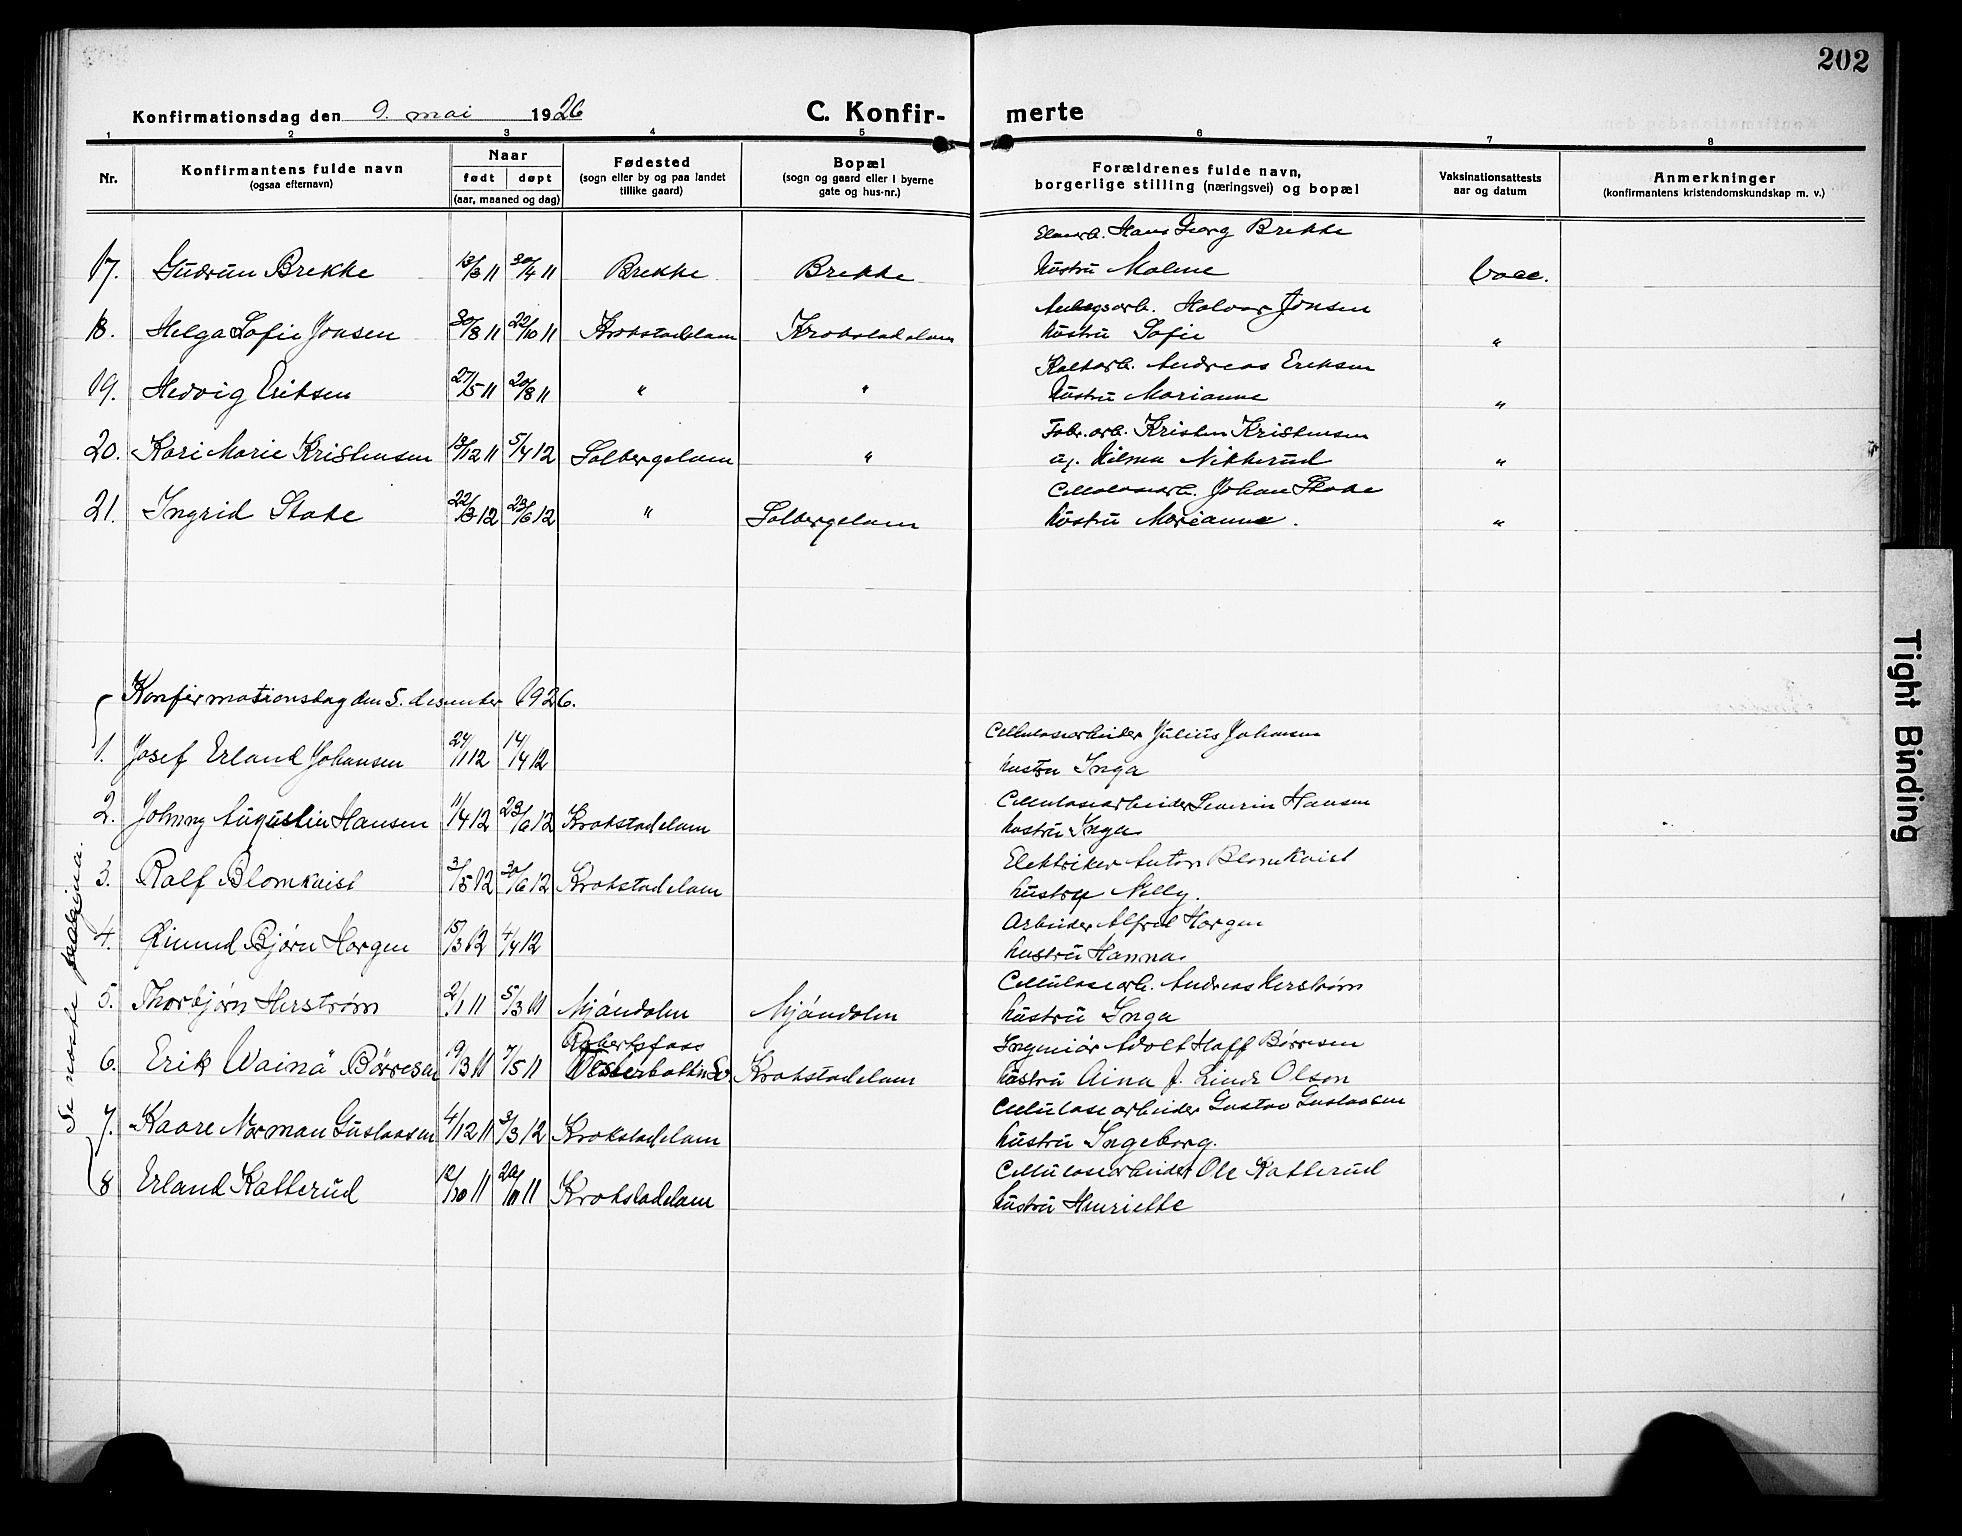 202
Konfirmationsdag den 9. mai 1926 C. Konfir- merte
1 2 3 4 5 6 7 8
Nr. Konfirmantens fulde navn (ogsaa efternavn) Naar født døpt (aar, maaned og dag) Fødested (sogn eller by og paa landet tillike gaard) Bopæl (sogn og gaard eller i byerne gate og hus-nr.) Forældrenes fulde navn, borgerlige stilling (næringsvei) og bopæl Vaksinationsattests aar og datum Anmerkninger (konfirmantens kristendomskundskap m. v.)
Hans Georg Brekke
17. Gudrun Brekke 13/3 11 30/4 11 Brekke Brekke hustru Malene Vacc.
Halvor Jonsen
18. Helga Sofie Jonsen 30/8 11 22/10 11 Krokstadelven Krokstadelven hustru Sofie "
Andreas Eriksen
19. Hedvig Eriksen 27/5 11 20/8 11 " " hustru Marianne "
Fabr.arb. Kristen Kristensen
20. Kari Marie Kristensen 13/12 11 5/4 12 Solbergelven " og Hilma Nikkerud "
Cellulosearb. Johan Stake
21. Ingrid Stake 22/3 12 23/6 12 " Solbergelven hustru Marianne. "
Konfirmationsdag den 5. desember 1926.
Cellulosearbeider Julius Johansen
1. Josef Erland Johansen 24/1 12 14/4 12 hustru Inga
Cellulosearbeider Severin Hansen
2. Johnny Augustin Hansen 11/4 12 23/6 12 Krokstadelven hustru Inga
Elektriker Anton Blomkvist
3. Ralf Blomkvist 3/5 12 30/6 12 Krokstadelven hustru Nelly.
Arbeider Alfred Horgen
4. Eivind Bjørn Horgen 15/3 12 4/4 12 hustru Hanna.
Cellulosearb. Andreas Herstrøm
5. Thorbjørn Herstrøm 2/1 11 5/3 11 Mjøndalen Mjøndalen hustru Inga
Robertsfoss Ingeniør Adolf Hoff Børresen
6. Erik Wainø Børresen 19/3 11 7/5 11 Westerbotten Sv. Krokstadelven hustru Aina f. Linde Olson
Cellulosearbeider Gustav Gustavsen
7. Kaare Norman Gustavsen 4/12 11 3/3 12 Krokstadelven hustru Ingeborg.
Cellulosearbeider Ole Katterud
8 Erland Katterud 12/10 11 Krokstadelven hustru Henriette
Se neste
Tight Binding